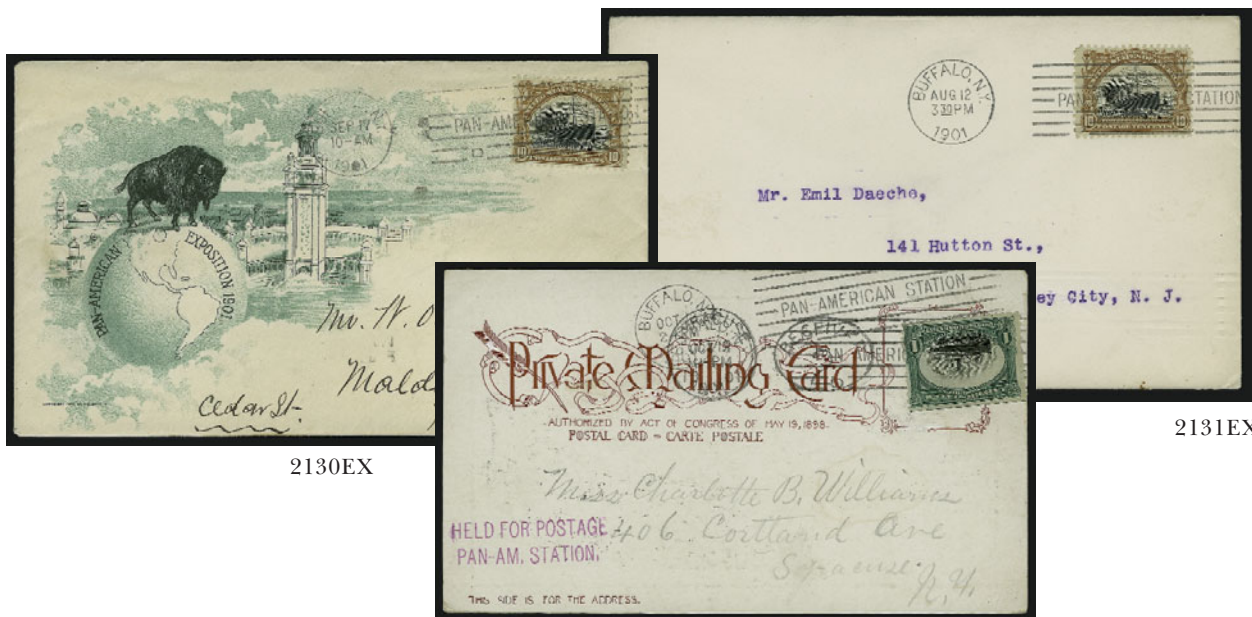 SEP 17
10-AM
1901
PAN-AM
10 10
PAN-AMERICAN EXPOSITION 1901
Mr. W.
Cedar St.
2130EX
BUFFALO, N.Y.
AUG 12
330PM
1901
PAN STATION
10 10
Mr. Emil Daeche,
141 Hutton St.,
ey City, N. J.
2131EX
BUFFALO, N.
OCT
OCT 19
PAN-AMERICAN STATION
PAN AMERIC
Private Mailing Card
AUTHORIZED BY ACT OF CONGRESS OF MAY 19, 1898.
POSTAL CARD - CARTE POSTALE
Miss Charlotte B. Williams
406 Cortland Ave
Syracuse
N.Y.
HELD FOR POSTAGE
PAN-AM. STATION.
THIS SIDE IS FOR THE ADDRESS.